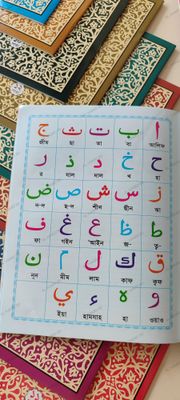 ا ب ت ث ج
আলিফ বা তা ছা জীম
ح خ د ذ ر
হা খ দাল যাল র
ز س ش ص ض
ঝা সীন শীন
ط ظ ع غ ف
'আইন গইন ফা
ق ك ل م ن
কাফ লাম মীম নূন
و ه ء ي
ওয়াও হা হামযাহ ইয়া